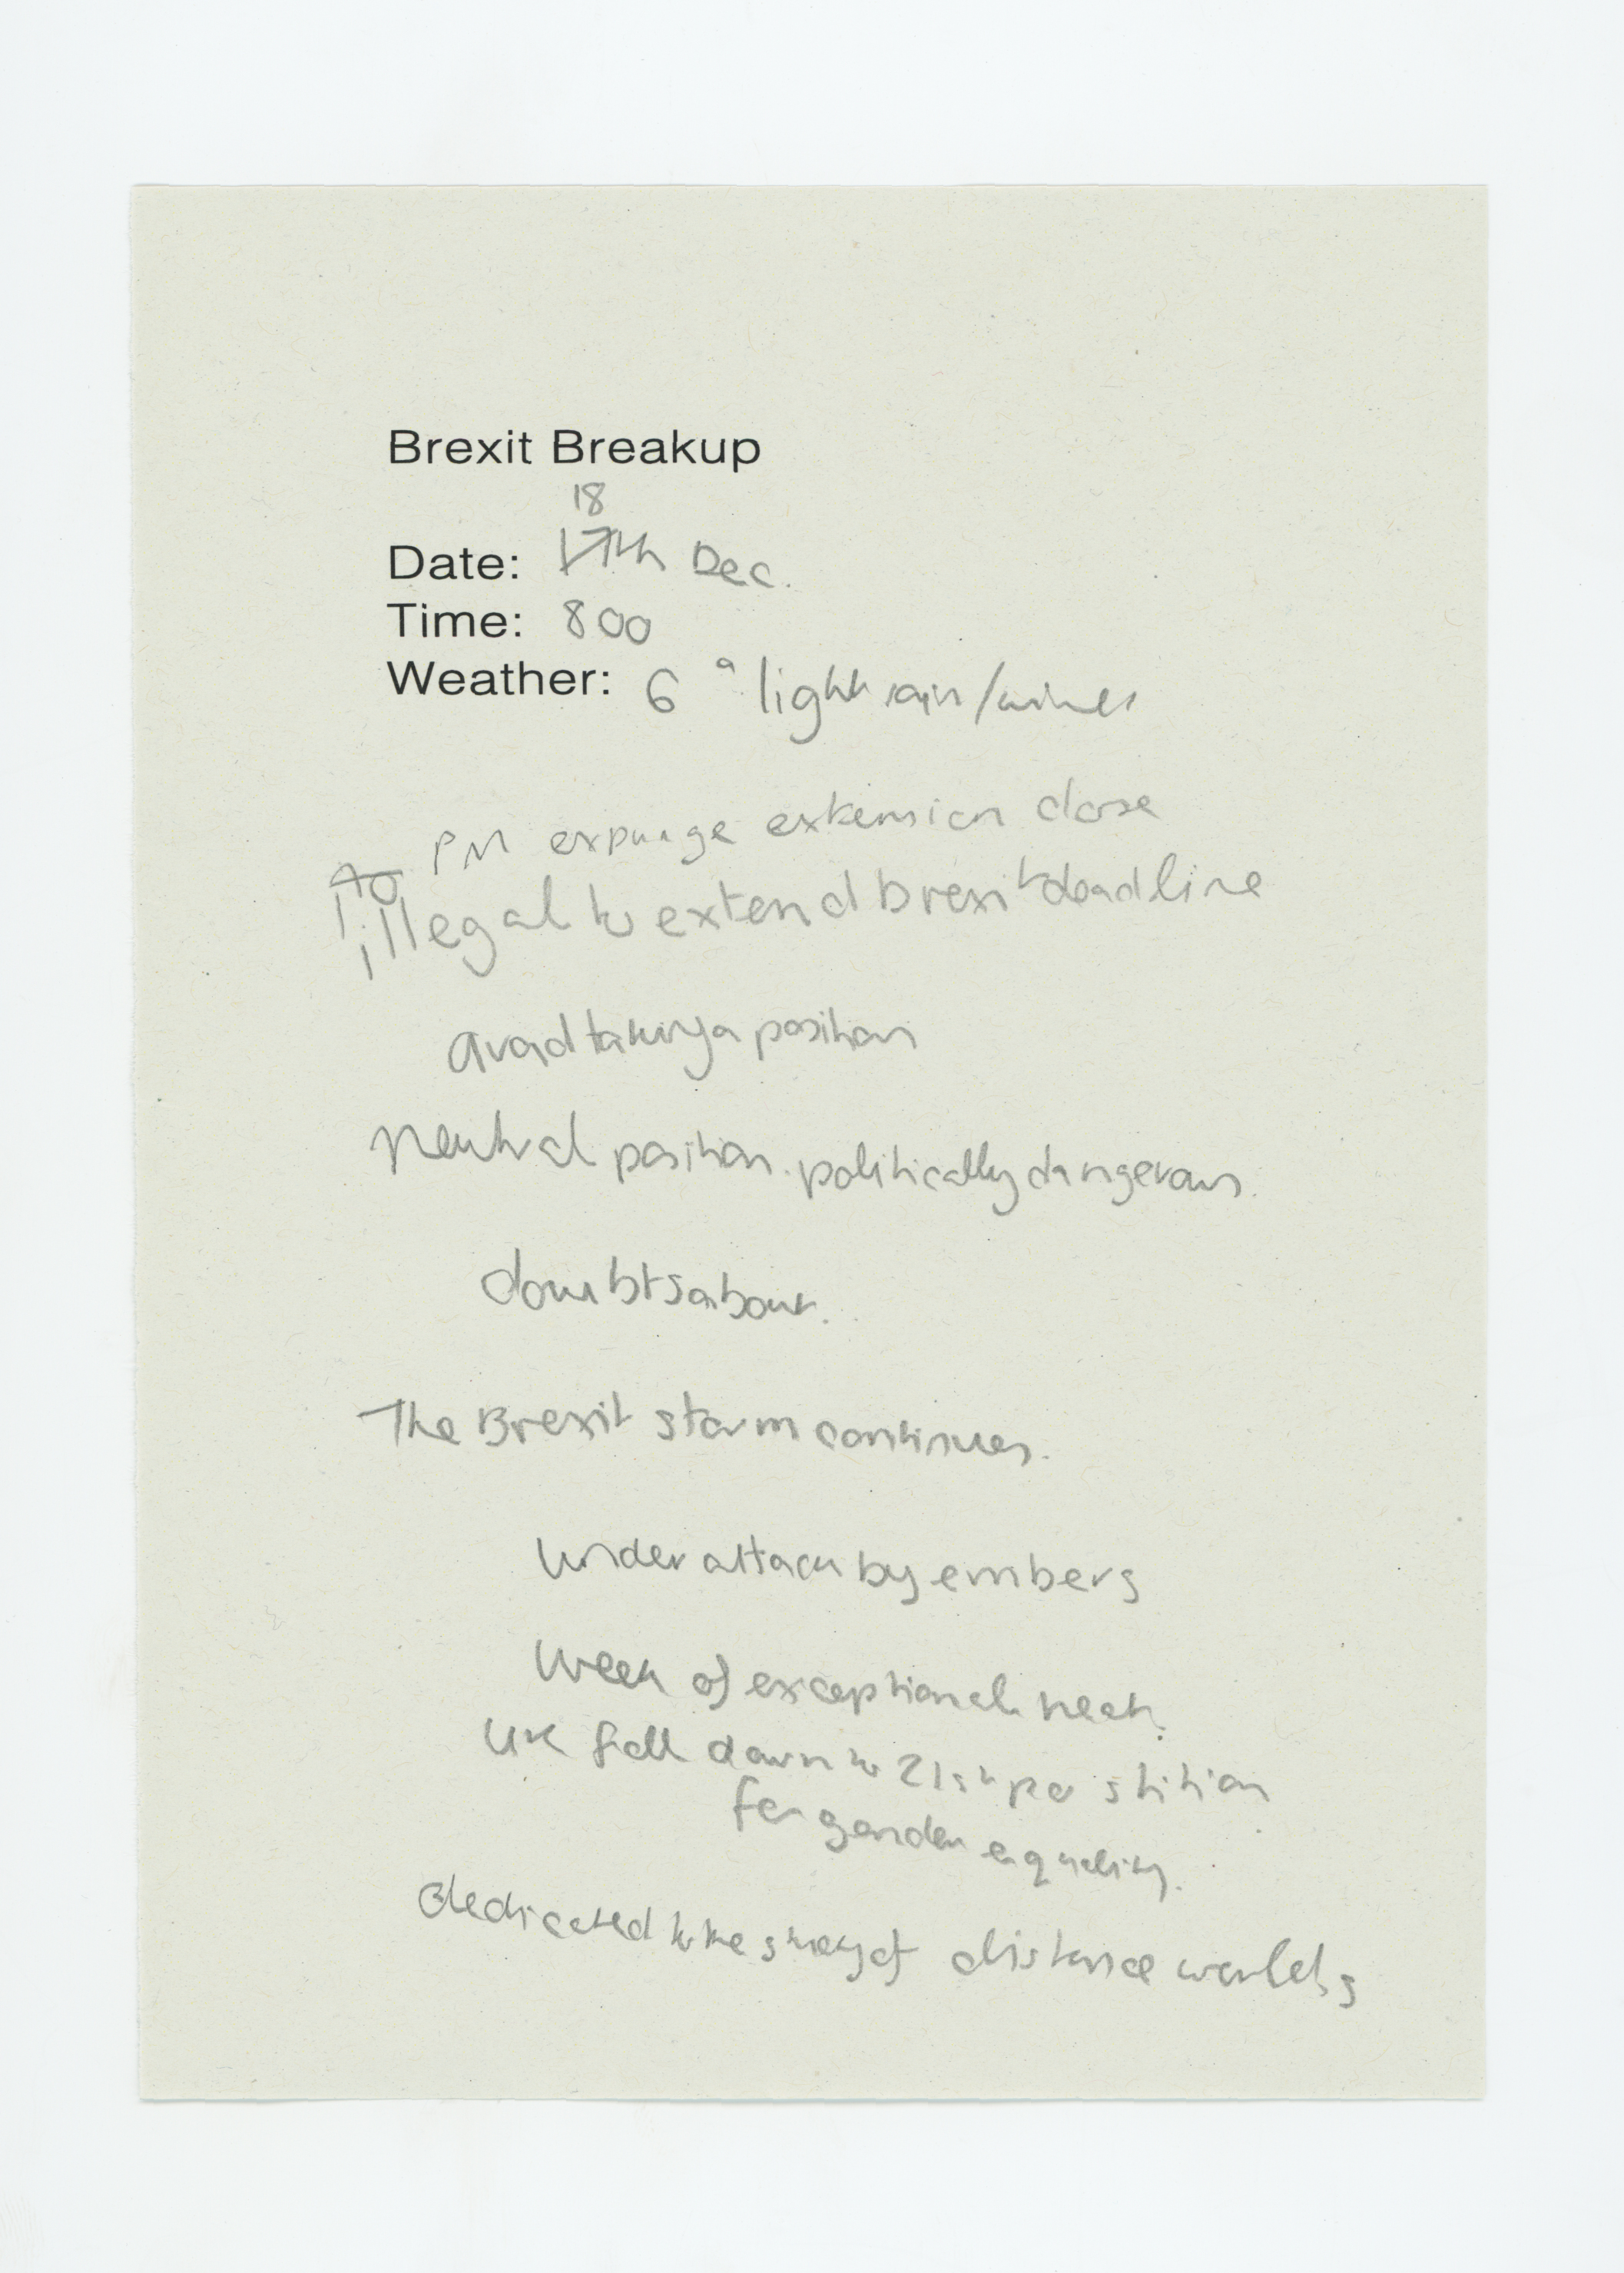 Brexit Breakup
18
Date: 17th Dec.
Time: 800
Weather: 6° light rain/winds
PM expunge extension clause
To
illegal to extend brexit deadline
avoid taking a position
Neutral position. politically dangerous.
doubts about.
The Brexit storm continues.
Under attack by embers
Week of exceptional heat.
UK fall down to 21st position
for gender equality.
dedicated to the study of distance worlds